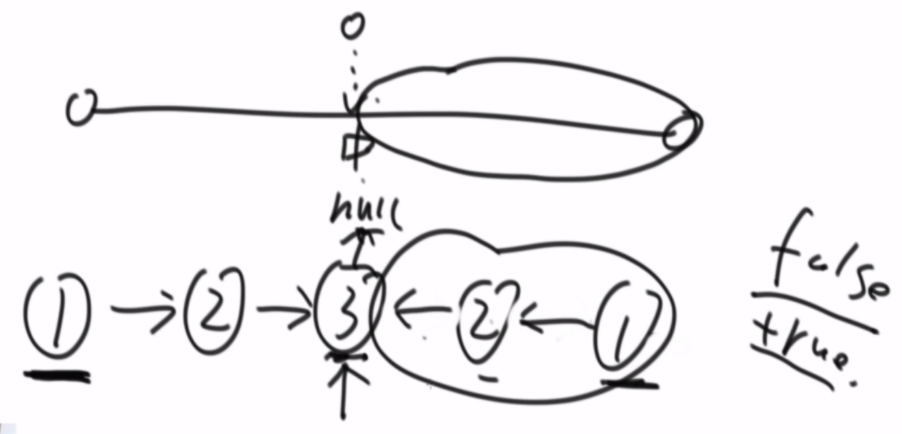 null
1 → 2 → 3 ← 2 ← 1
false
true.